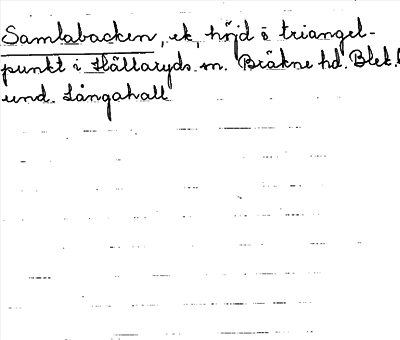 Samlabacken, ek, höjd o triangel-
punkt i Hällaryds sn. Bräkne hd. Blek.l
und. Långahall